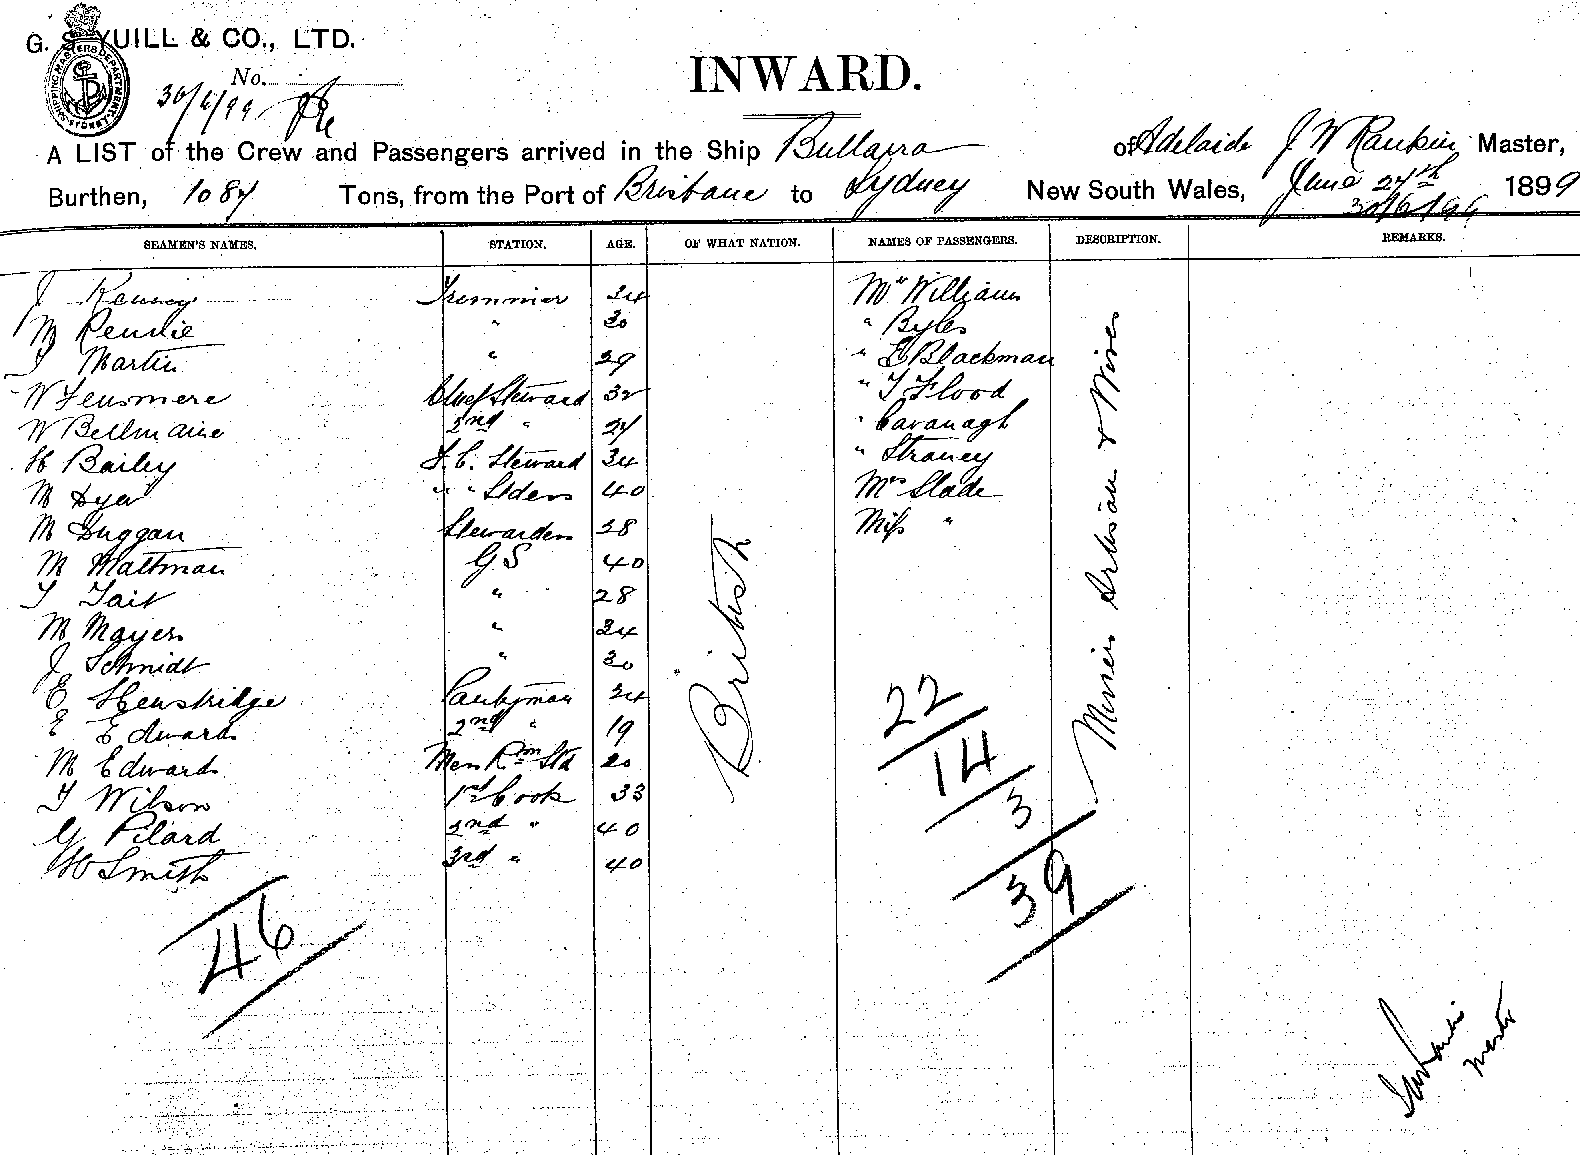 G. S. YUILL & CO., LTD.
SHIPPING MASTERS DEPARTMENT SYDNEY
No.
30/6/99
INWARD.
A LIST of the Crew and Passengers arrived in the Ship Bullarra of Adelaide J W Rankin Master,
Burthen, 1087 Tons, from the Port of Brisbane to Sydney New South Wales, June 27th 1899
30/6/99
SEAMEN'S NAMES. STATION. AGE. OF WHAT NATION. NAMES OF PASSENGERS. DESCRIPTION. REMARKS.
J Kenney Tremmier 24 Mr Williams
M 30 " Byles
T Martin " 29 " E Blackman
W Fensmere Chief Steward 32 " T Flood
W Bellmaine 2nd " 27 " Cavanagh
H Bailey F.C. Steward 34 " Straney
M Dyer " " Stdess 40 Mrs Slade
M Duggan Stewardess 28 Miss "
M Mattman G S 40
T Tait " 28
M Mayers " 24
J Schmidt " 30
E Henskridge Pantryman 24
E Edwards 2nd " 19
M Edwards Mess Rm Std 20
T Wilson 1st Cook 33
G Pilard 2nd " 40
H Smith 3rd " 40
British
Miners Artisans & Wives
46
22
14
3
39
Master